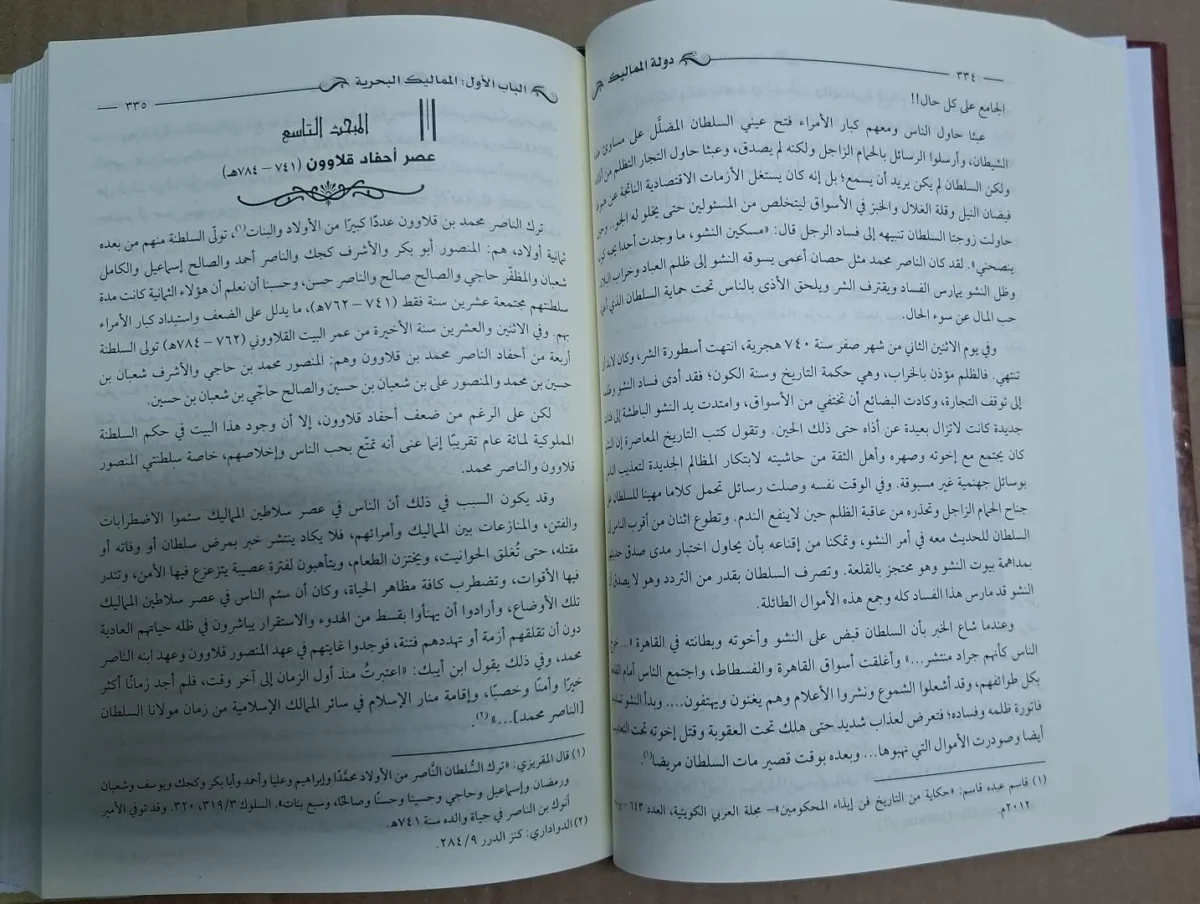 ٣٣٤ دولة المماليك
الجامع على كل حال!!
عبثا حاول الناس ومعهم كبار الأمراء فتح عيني السلطان المضلَّل على مساوئ هذا
الشيطان، وأرسلوا الرسائل بالحمام الزاجل ولكنه لم يصدق، وعبثا حاول التجار التظلم من
ولكن السلطان لم يكن يريد أن يسمع؛ بل إنه كان يستغل الأزمات الاقتصادية الناتجة عن
فيضان النيل وقلة الغلال والخبز في الأسواق ليتخلص من المسئولين حتى يخلو له الجو..
حاولت زوجتا السلطان تنبيهه إلى فساد الرجل قال: «مسكين النشو، ما وجدت أحدا يحبه
ينصحني». لقد كان الناصر محمد مثل حصان أعمى يسوقه النشو إلى ظلم العباد وخراب البلاد
وظل النشو يمارس الفساد ويقترف الشر ويلحق الأذى بالناس تحت حماية السلطان الذي
حب المال عن سوء الحال.
وفي يوم الاثنين الثاني من شهر صفر سنة ٧٤٠ هجرية، انتهت أسطورة الشر، وكان لابد أن
تنتهي. فالظلم مؤذن بالخراب، وهي حكمة التاريخ وسنة الكون؛ فقد أدى فساد النشو وظلمه
إلى توقف التجارة، وكادت البضائع أن تختفي من الأسواق، وامتدت يد النشو الباطشة إلى
جديدة كانت لاتزال بعيدة عن أذاه حتى ذلك الحين. وتقول كتب التاريخ المعاصرة إن النشو
كان يجتمع مع إخوته وصهره وأهل الثقة من حاشيته لابتكار المظالم الجديدة لتعذيب الناس
بوسائل جهنمية غير مسبوقة. وفي الوقت نفسه وصلت رسائل تحمل كلاما مهينا للسلطان على
جناح الحمام الزاجل وتحذره من عاقبة الظلم حين لاينفع الندم. وتطوع اثنان من أقرب الناس إلى
السلطان للحديث معه في أمر النشو، وتمكنا من إقناعه بأن يحاول اختبار مدى صدق حديثهما
بمداهمة بيوت النشو وهو محتجز بالقلعة. وتصرف السلطان بقدر من التردد وهو لا يصدق أن
النشو قد مارس هذا الفساد كله وجمع هذه الأموال الطائلة.
وعندما شاع الخبر بأن السلطان قبض على النشو وأخوته وبطانته في القاهرة «... خرج
الناس كأنهم جراد منتشر...» وأغلقت أسواق القاهرة والفسطاط، واجتمع الناس أمام القلعة
بكل طوائفهم، وقد أشعلوا الشموع ونشروا الأعلام وهم يغنون ويهتفون.... وبدأ النشو
فاتورة ظلمه وفساده؛ فتعرض لعذاب شديد حتى هلك تحت العقوبة وقتل إخوته تحت التعذيب
أيضا وصودرت الأموال التي نهبوها... وبعده بوقت قصير مات السلطان مريضا(١).
(١) قاسم عبده قاسم: «حكاية من التاريخ فن إيذاء المحكومين»– مجلة العربي الكويتية، العدد ٦٤٣ –
٢٠١٢م.
الباب الأول: المماليك البحرية ٣٣٥
المبحث التاسع
عصر أحفاد قلاوون (٧٤١ – ٧٨٤هـ)
ترك الناصر محمد بن قلاوون عددًا كبيرًا من الأولاد والبنات(١)، تولّى السلطنة منهم من بعده
ثمانية أولاد، هم: المنصور أبو بكر والأشرف كجك والناصر أحمد والصالح إسماعيل والكامل
شعبان والمظفّر حاجي والصالح صالح والناصر حسن، وحسبنا أن نعلم أن هؤلاء الثمانية كانت مدة
سلطنتهم مجتمعة عشرين سنة فقط (٧٤١ – ٧٦٢هـ)، ما يدلل على الضعف واستبداد كبار الأمراء
بهم. وفي الاثنين والعشرين سنة الأخيرة من عمر البيت القلاووني (٧٦٢ – ٧٨٤هـ) تولى السلطنة
أربعة من أحفاد الناصر محمد بن قلاوون وهم: المنصور محمد بن حاجي والأشرف شعبان بن
حسين بن محمد والمنصور على بن شعبان بن حسين والصالح حاجّي بن شعبان بن حسين.
لكن على الرغم من ضعف أحفاد قلاوون، إلا أن وجود هذا البيت في حكم السلطنة
المملوكية لمائة عام تقريبًا إنما عنى أنه تمتّع بحب الناس وإخلاصهم، خاصة سلطنتي المنصور
قلاوون والناصر محمد.
وقد يكون السبب في ذلك أن الناس في عصر سلاطين المماليك سئموا الاضطرابات
والفتن، والمنازعات بين المماليك وأمرائهم، فلا يكاد ينتشر خبر بمرض سلطان أو وفاته أو
مقتله، حتى تُغلق الحوانيت، ويختزن الطعام، ويتأهبون لفترة عصيبة يتزعزع فيها الأمن، وتندر
فيها الأقوات، وتضطرب كافة مظاهر الحياة، وكان أن سئم الناس في عصر سلاطين المماليك
تلك الأوضاع، وأرادوا أن يهنأوا بقسط من الهدوء والاستقرار يباشرون في ظله حياتهم العادية
دون أن تقلقهم أزمة أو تهددهم فتنة، فوجدوا غايتهم في عهد المنصور قلاوون وعهد ابنه الناصر
محمد، وفي ذلك يقول ابن أيبك: «اعتبرتُ منذ أول الزمان إلى آخر وقت، فلم أجد زمانًا أكثر
خيرًا وأمنًا وخصبًا، وإقامة منار الإسلام في سائر الممالك الإسلامية من زمان مولانا السلطان
[الناصر محمد]...»(٢).
(١) قال المقريزي: «ترك السُّلطان النَّاصر من الأولاد محمَّدًا وإبراهيم وعليا وأحمد وأبا بكر وكجك ويوسف وشعبان
ورمضان وإسماعيل وحاجي وحسينا وحسنًا وصالحًا، وسبع بنات». السلوك ٣/ ٣١٩، ٣٢٠. وقد توفي الأمير
آنوك بن الناصر في حياة والده سنة ٧٤١هـ.
(٢) الدواداري: كنز الدرر ٩/ ٢٨٤.